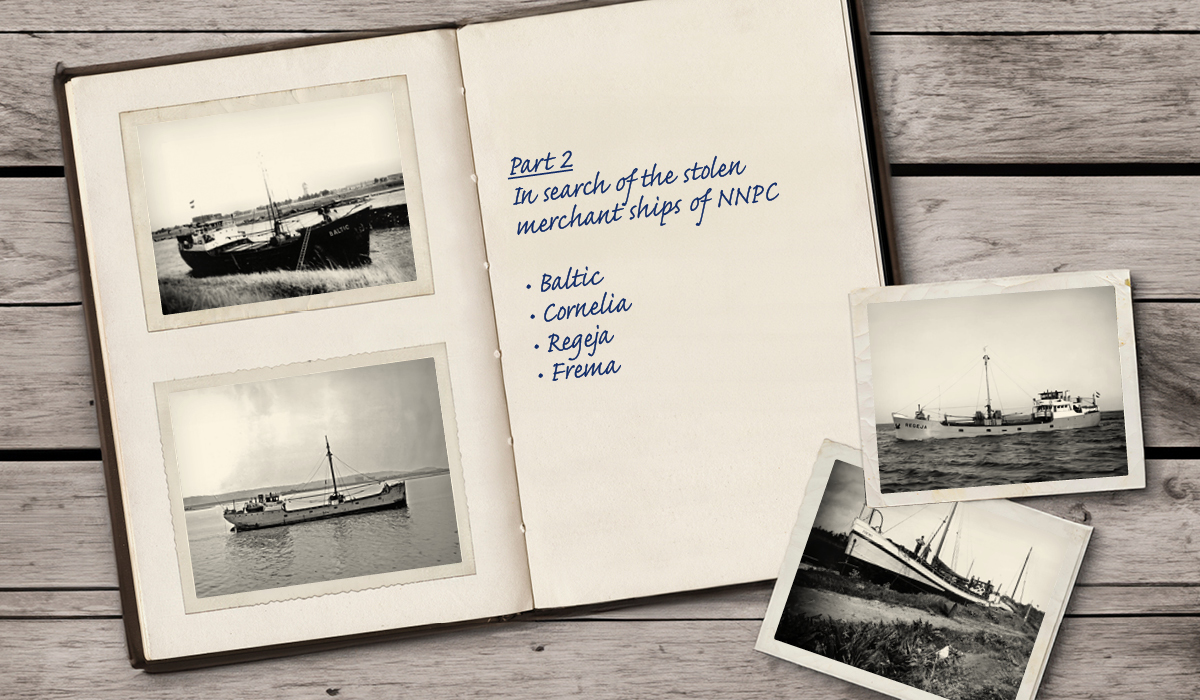 BALTIC
Part 2
In search of the stolen
merchant ships of NNPC
• Baltic
• Cornelia
• Regeja
• Frema
REGEJA